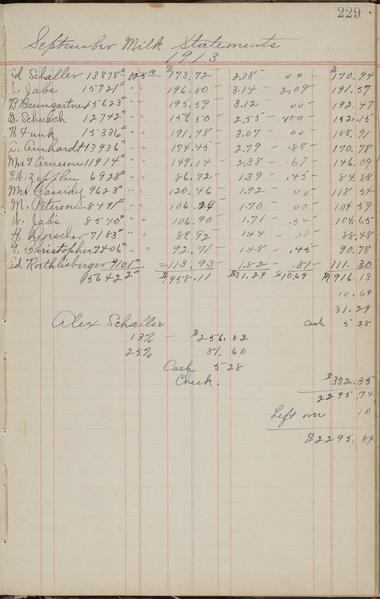 229
September Milk Statements
1913
Ed Schaller 13878# 125¢ $173.72 2.78 00 $170.94
L. Jabs 15721 " " 196.80 3.14 2.09 191.57
B Baumgartner 15623 " " 195.59 3.12 00 192.47
G. Schuch 12742 " " 159.50 2.55 4.80 152.15
H Funk 15336 " " 191.98 3.07 00 188.91
Arnhardt 13936 " " 174.45 2.79 .88 170.78
Mrs F Arneson 11914 " " 149.14 2.38 .67 146.09
Zefflin 6928 " " 86.72 1.39 .45 84.88
Mrs Cassidy 9623 " " 120.46 1.92 00 118.54
M. Peterson 8491 " " 106.29 1.70 00 104.59
Jabs 8540 " " 106.90 1.71 .54 104.65
H Dorscher 7183 " " 89.92 1.44 00 88.48
G. Christopher 7406 " " 92.71 1.48 .45 90.78
Ed Rothlisberger 9101 " 113.93 1.82 .81 111.30
$1958.11 $31.29 $10.69 $1916.13
10.69
31.29
Alex Schaller Cash 5 28
13% — $256.02
25% 81.60
Cash 5 28
Check. $332.35
2295.74
Left over 10
$2295.84